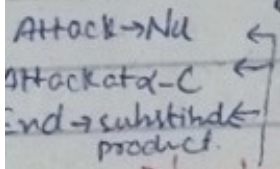 Attack→Nu
Attack at α-C
End → substind
product.